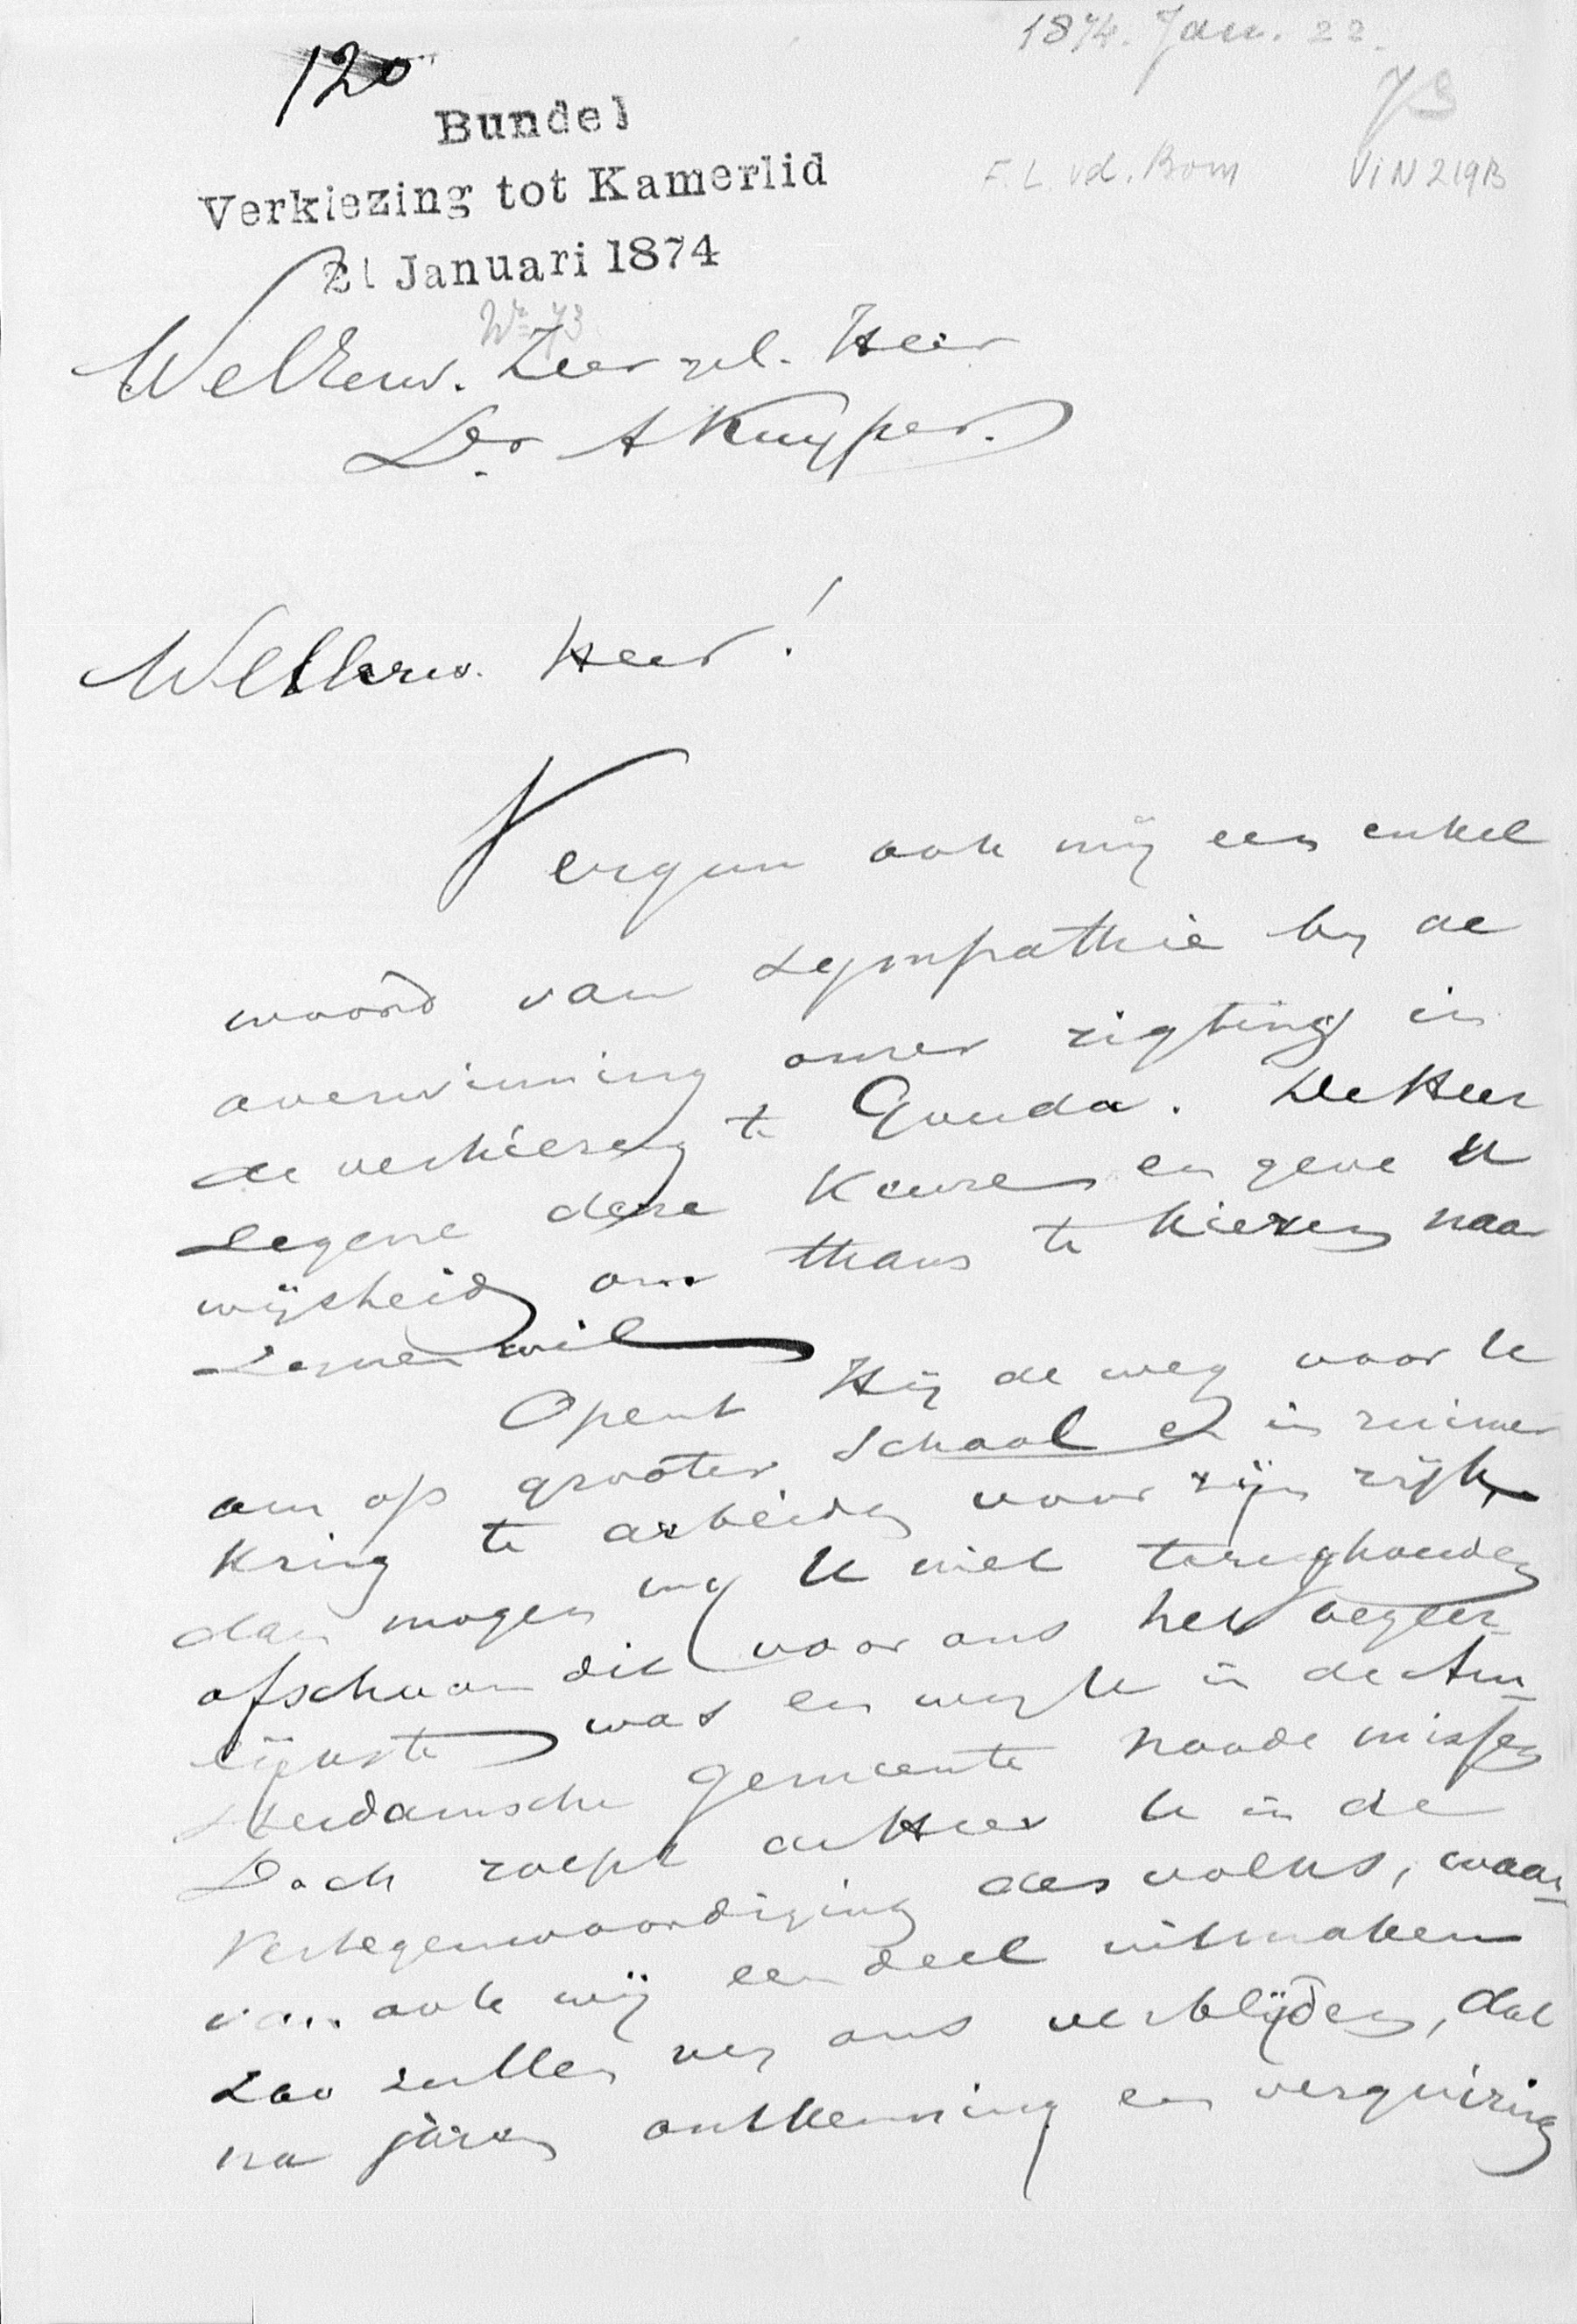 1874. Jan. 22.
120
73
Bundel
F. L. vd. Bom
VIN219B
Verkiezing tot Kamerlid
21 Januari 1874
No 73
WelEerw. Zeer gel. Heer
Dr. A Kuyper.
WelEerw. Heer!
Vergun ook mij een enkel
woord van sympathie bij de
overwinning onzer rigting in
de verkiezing te Gouda. De Heer
zegene deze keuze en geve U
wijsheid om thans te kiezen naar
Zijnen wil
Opent Hij de weg voor U
om op grooter schaal en in ruimer
kring te arbeiden voor zijn rijk,
dan mogen wij U niet terughouden
ofschoon dit voor ons het begeer-
lijkste was en wij U in de Am-
sterdamsche gemeente noode missen
Doch roept de Heer U in de
Vertegenwoordiging des volks, waar-
van ook wij een deel uitmaken
zoo zullen wij ons verblijden, dat
na jaren ontkenning en verguizing